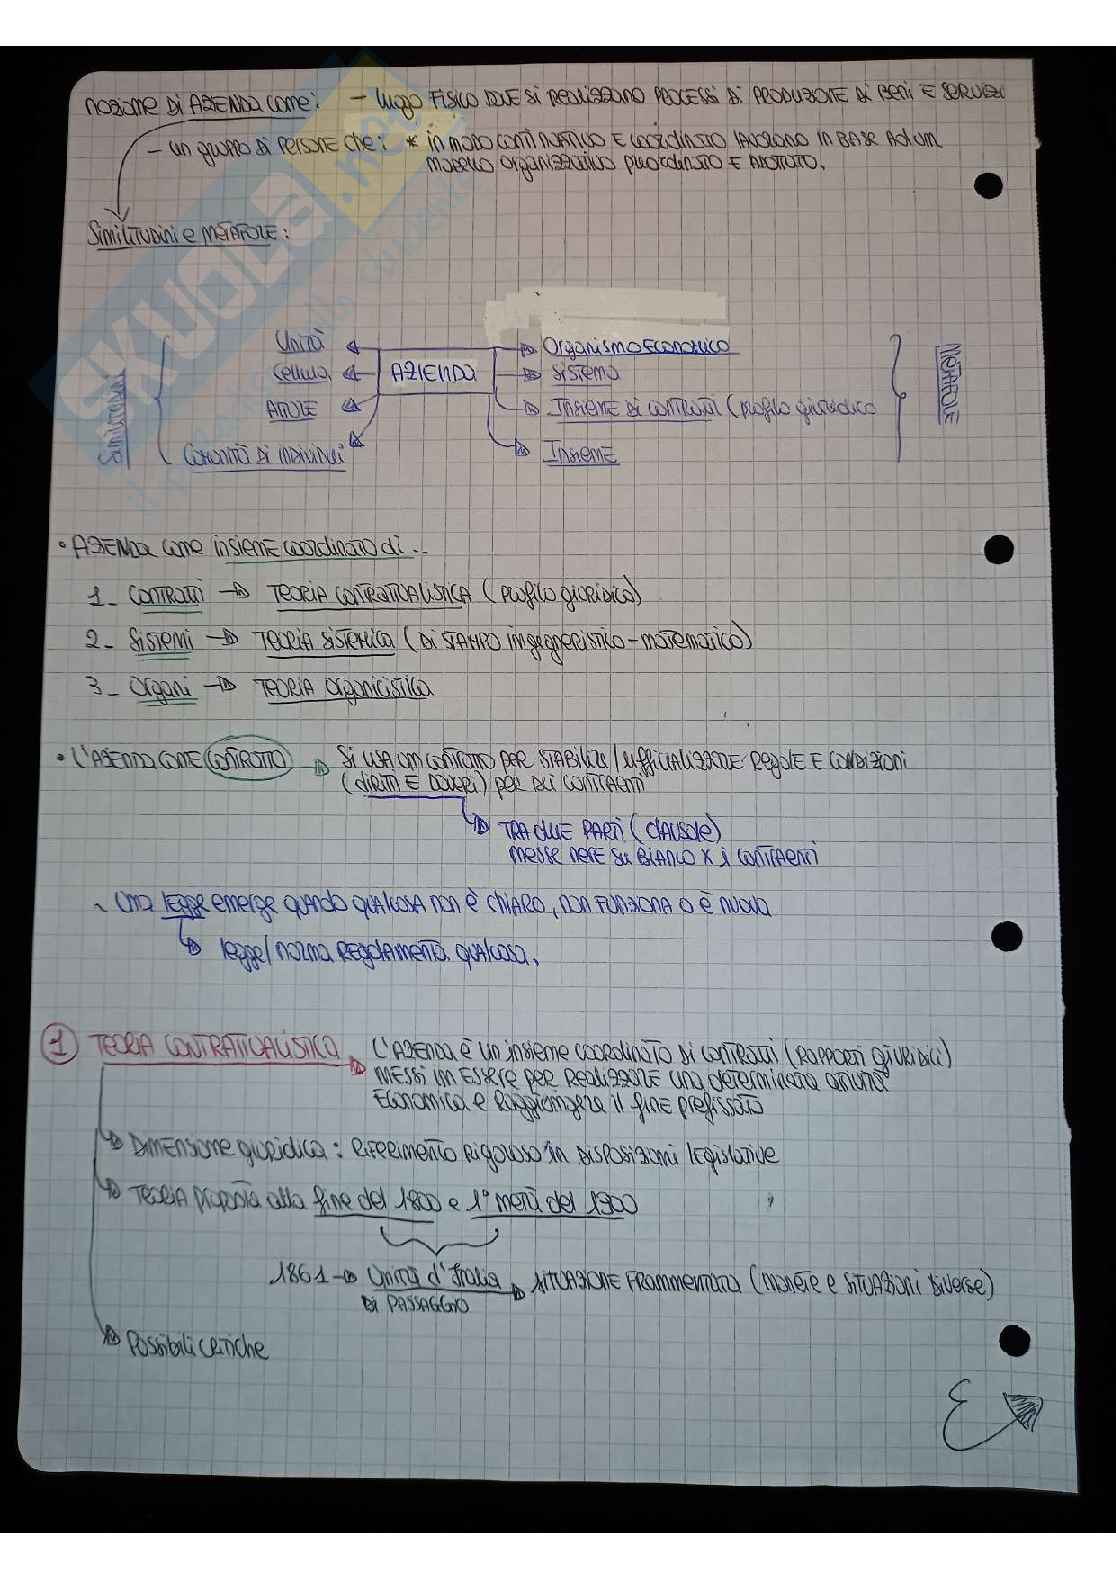 nozione di AZIENDA come: - luogo FISICO DOVE SI REALIZZANO PROCESSI DI PRODUZIONE DI BENI E SERVIZI
- un gruppo di PERSONE che: * in modo continuativo E coordinato lavorano in BASE AD un
modello organizzativo preordinato E
SIMILITUDINI e METAFORE:
Unità
Cellula
ATOLE
Comunità di individui
Similitudini
AZIENDA
Organismo Economico
Sistema
INSIEME DI CONTRATTI (profilo giuridico
Insieme
METAFORE
• AZIENDA come insieme coordinato di..
1- CONTRATTI → TEORIA CONTRATTUALISTICA (profilo giuridico)
2- Sistemi → TEORIA SISTEMICA (DI STAMPO ingegneristico-matematico)
3- Organi → TEORIA Organicistica
• L'AZIENDA COME CONTRATTO → SI USA UN CONTRATTO PER STABILIRE/ufficializzare REGOLE E CONDIZIONI
(diritti E DOVERI) per xi CONTRAENTI
→ TRA DUE PARTI (clausole)
messe NERE SU BIANCO x i CONTRAENTI
- Una legge emerge quando qualcosa non è chiaro, non FUNZIONA o è nuova
→ legge/norma REgolamenta qualcosa.
1 TEORIA CONTRATTUALISTICA → L'AZIENDA è un insieme coordinato DI contratti (RAPPORTI giuridici)
MESSI IN ESSERE per REALIZZARE una determinata attività
Economica e Raggiungere il fine prefissato
→ DIMENSIONE giuridica: RIFERIMENTO rigoroso in DISPOSIZIONI legislative
→ TEORIA proposta alla fine del 1800 e 1° metà del 1900
1861 → Unità d'Italia → SITUAZIONE Frammentata (monete e SITUAZIONI DIVERSE)
DI PASSAGGIO
→ POSSIBILI CRITICHE
SKUOLA.net